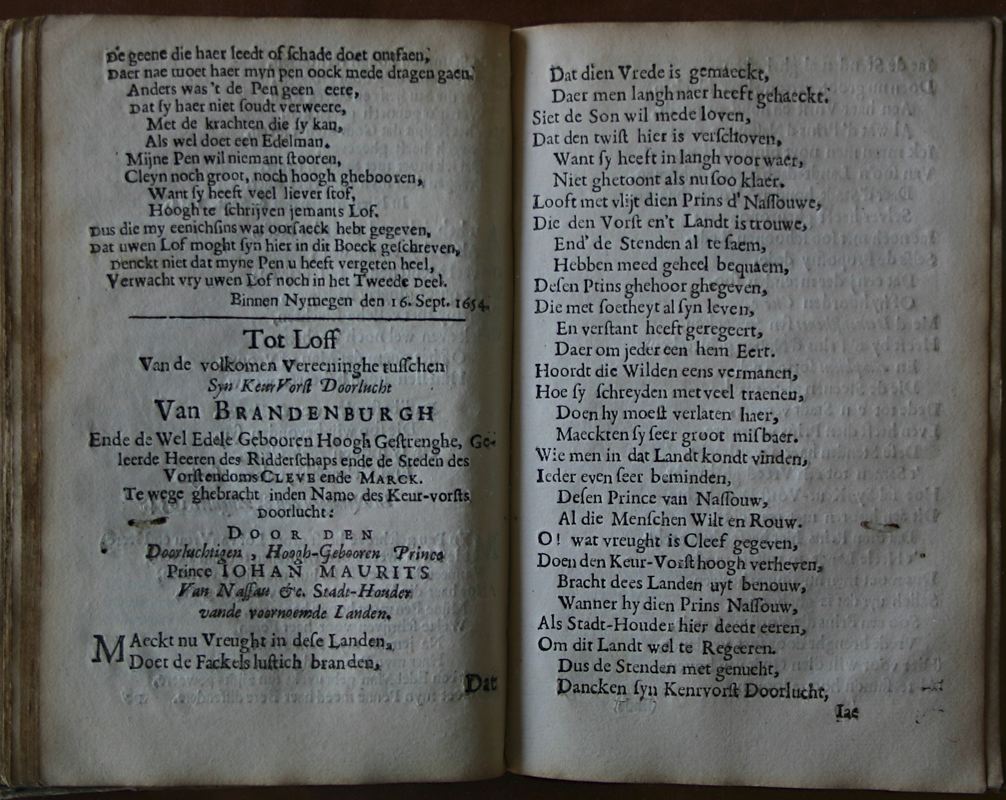 De geene die haer leedt of ſchade doet ontfaen,
Daer nae moet haer myn pen oock mede dragen gaen.
Anders was 't de Pen geen eere,
Dat ſy haer niet ſoudt verweere,
Met de krachten die ſy kan,
Als wel doet een Edelman.
Mijne Pen wil niemant ſtooren,
Cleyn noch groot, noch hoogh ghebooren,
Want ſy heeft veel liever ſtof,
Hoogh te ſchrijven jemants Lof.
Dus die my eenichſins wat oorſaeck hebt gegeven,
Dat uwen Lof moght ſyn hier in dit Boeck geſchreven,
Denckt niet dat myne Pen u heeft vergeten heel,
Verwacht vry uwen Lof noch in het Tweede Deel.
Binnen Nymegen den 16. Sept. 1654.
Tot Loff
Van de volkomen Vereeninghe tuſſchen
Syn KeurVorſt Doorlucht
Van BRANDENBURGH
Ende de Wel Edele Gebooren Hoogh Geſtrenghe, Ge-
leerde Heeren des Ridderſchaps ende de Steden des
Vorſtendoms CLEVE ende MARCK.
Te wege ghebracht inden Name des Keur-vorſts
Doorlucht:
DOOR DEN
Doorluchtigen, Hoogh-Gebooren Prince
Prince IOHAN MAURITS
Van Naſſau &c. Stadt-Houder
vande voornoemde Landen.
MAeckt nu Vreught in deſe Landen,
Doet de Fackels luſtich branden,
Dat
Dat dien Vrede is gemaeckt,
Daer men langh naer heeft gehaeckt.
Siet de Son wil mede loven,
Dat den twiſt hier is verſchoven,
Want ſy heeft in langh voorwaer,
Niet ghetoont als nu ſoo klaer.
Looft met vlijt dien Prins d' Naſſouwe,
Die den Vorſt en't Landt is trouwe,
End' de Stenden al te ſaem,
Hebben meed geheel bequaem,
Deſen Prins ghehoor ghegeven,
Die met ſoetheyt al ſyn leven,
En verſtant heeft geregeert,
Daer om jeder een hem Eert.
Hoordt die Wilden eens vermanen,
Hoe ſy ſchreyden met veel traenen,
Doen hy moeſt verlaten haer,
Maeckten ſy ſeer groot misbaer.
Wie men in dat Landt kondt vinden,
Ieder even ſeer beminden,
Deſen Prince van Naſſouw,
Al die Menſchen Wilt en Rouw.
O! wat vreught is Cleef gegeven,
Doen den Keur-Vorſt hoogh verheven,
Bracht dees Landen uyt benouw,
Wanner hy dien Prins Naſſouw,
Als Stadt-Houder hier deedt eeren,
Om dit Landt wel te Regeeren.
Dus de Stenden met genucht,
Dancken ſyn Kenrvorſt Doorlucht,
Iae